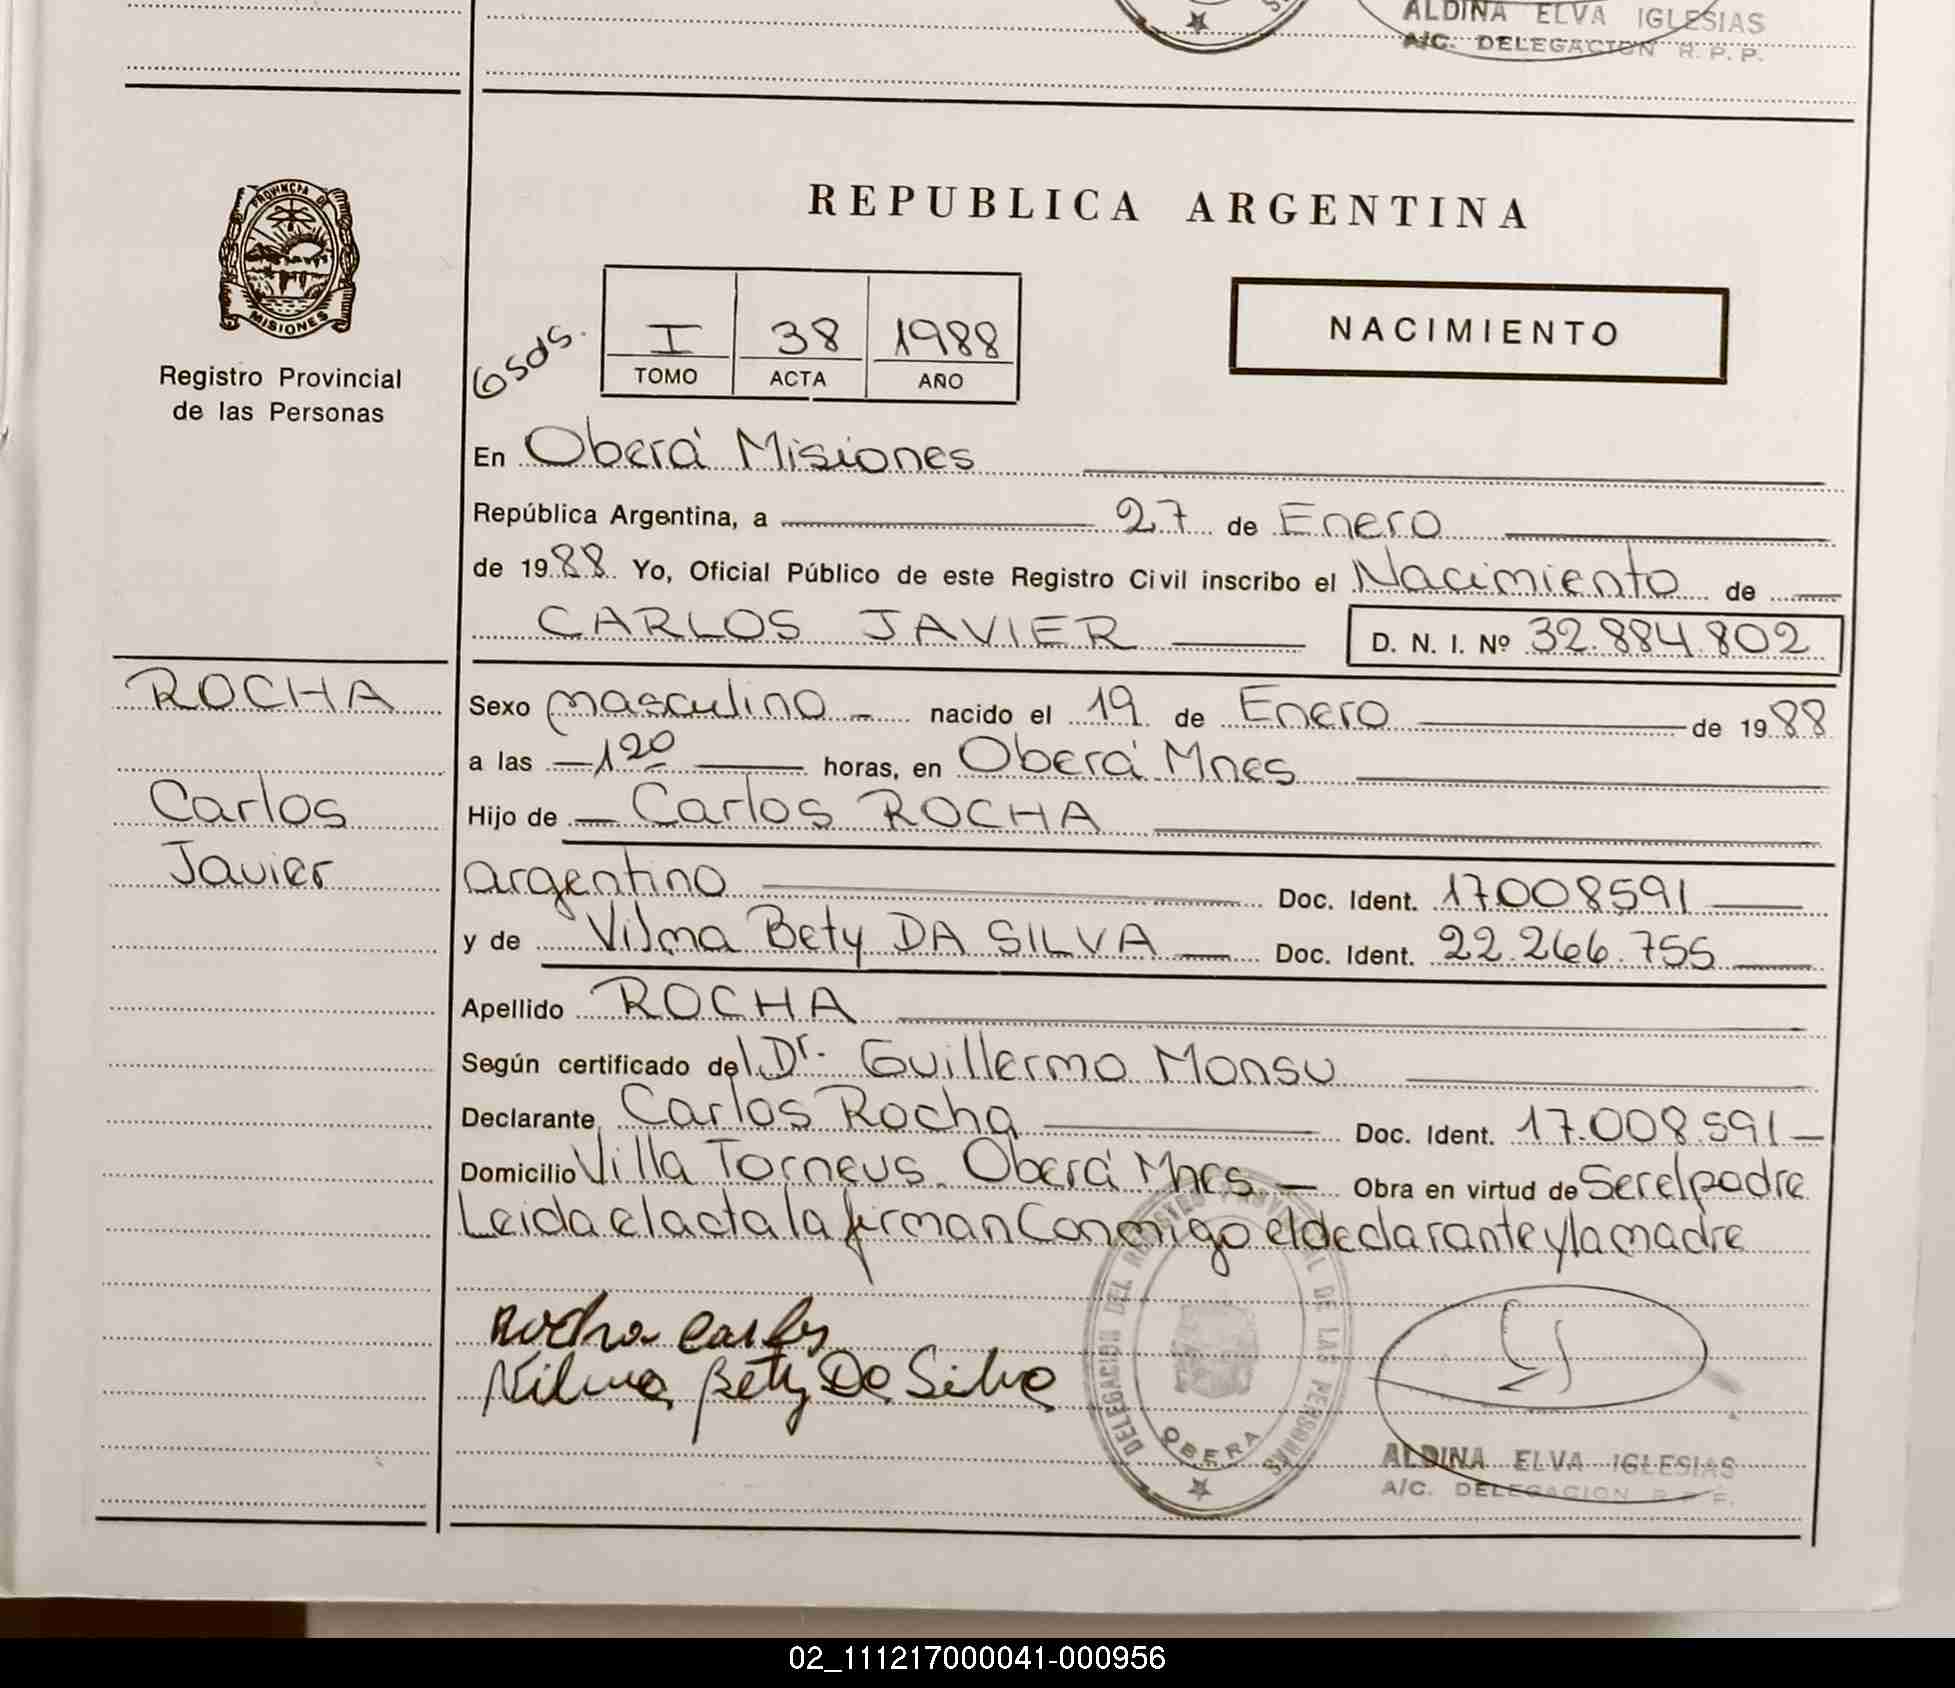 ALDINA ELVA IGLESIAS
A/C. DELEGACION R. P. P.
PROVINCIA DE
MISIONES
Registro Provincial
de las Personas
REPUBLICA ARGENTINA
I 38 1988
TOMO ACTA AÑO
NACIMIENTO
En Oberá Misiones
República Argentina, a 27 de Enero
de 1988 Yo, Oficial Público de este Registro Civil inscribo el Nacimiento de
CARLOS JAVIER D. N. I. Nº 32.884.802
ROCHA
Carlos
Javier
Sexo masculino nacido el 19 de Enero de 1988
a las 1 20 horas, en Oberá Mnes
Hijo de Carlos ROCHA
argentino Doc. Ident. 17008591
y de Vilma Bety DA SILVA Doc. Ident. 22.266.755
Apellido ROCHA
Según certificado del Dr. Guillermo Monsu
Declarante Carlos Rocha Doc. Ident. 17.008.591
Domicilio Villa Torneus. Oberá Mnes Obra en virtud de Ser el padre
Leida el acta la firman Conmigo el declarante y la madre
Rocha Carlos
Vilma Bety Da Silva
DELEGACION DEL REGISTRO PROVINCIAL DE LAS PERSONAS
OBERA
ALDINA ELVA IGLESIAS
A/C. DELEGACION R. P. P.
02_111217000041-000956